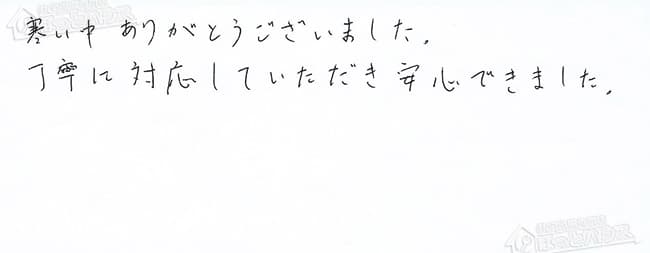 寒い中ありがとうございました。
丁寧に対応していただき安心できました。